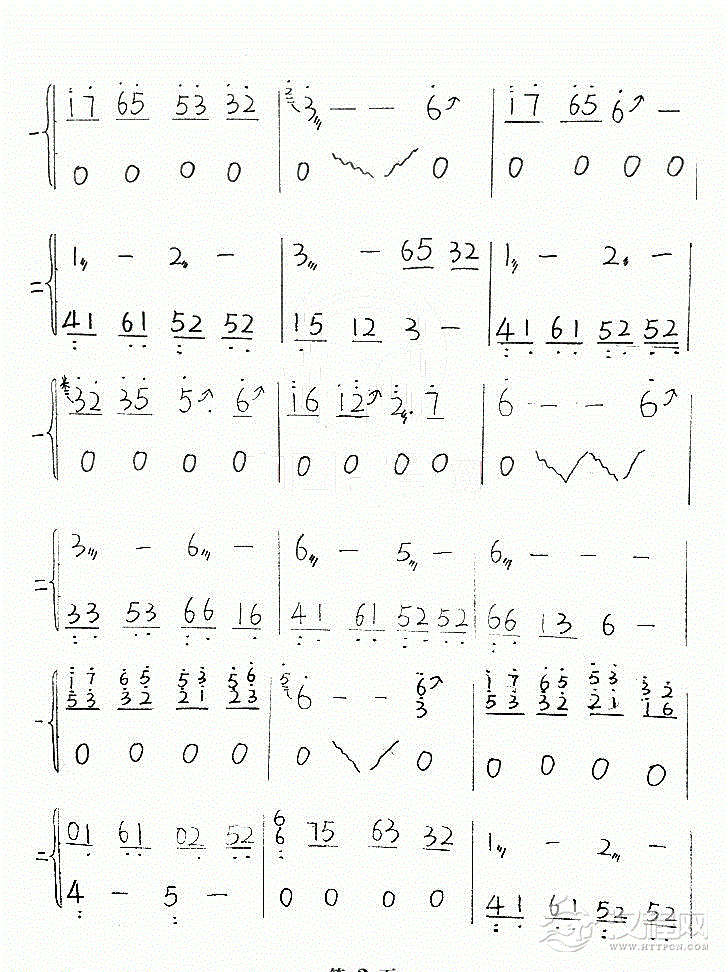 一 17 65 53 32 | 2 3 — — 6 | 17 65 6 —
0 0 0 0 | 0 0 | 0 0 0 0
二 1 — 2 — | 3 — 65 32 | 1 — 2 —
41 61 52 52 | 15 12 3 — | 41 61 52 52
一 32 35 5 . 6 | 16 12 2 . 7 | 6 — — 6
0 0 0 0 | 0 0 0 0 | 0
二 3 — 6 — | 6 — 5 — | 6 — — —
33 53 66 16 | 41 61 52 52 | 66 13 6 —
一 17 65 53 56 | 5 6 — — 6 | 17 65 53 32
53 32 21 23 | 3 | 53 32 21 16
0 0 0 0 | 0 0 | 0 0 0 0
二 01 61 02 52 | 6 75 63 32 | 1 — 2 —
6
4 — 5 — | 0 0 0 0 | 41 61 52 52
汉程网
WWW.HTTPCN.COM